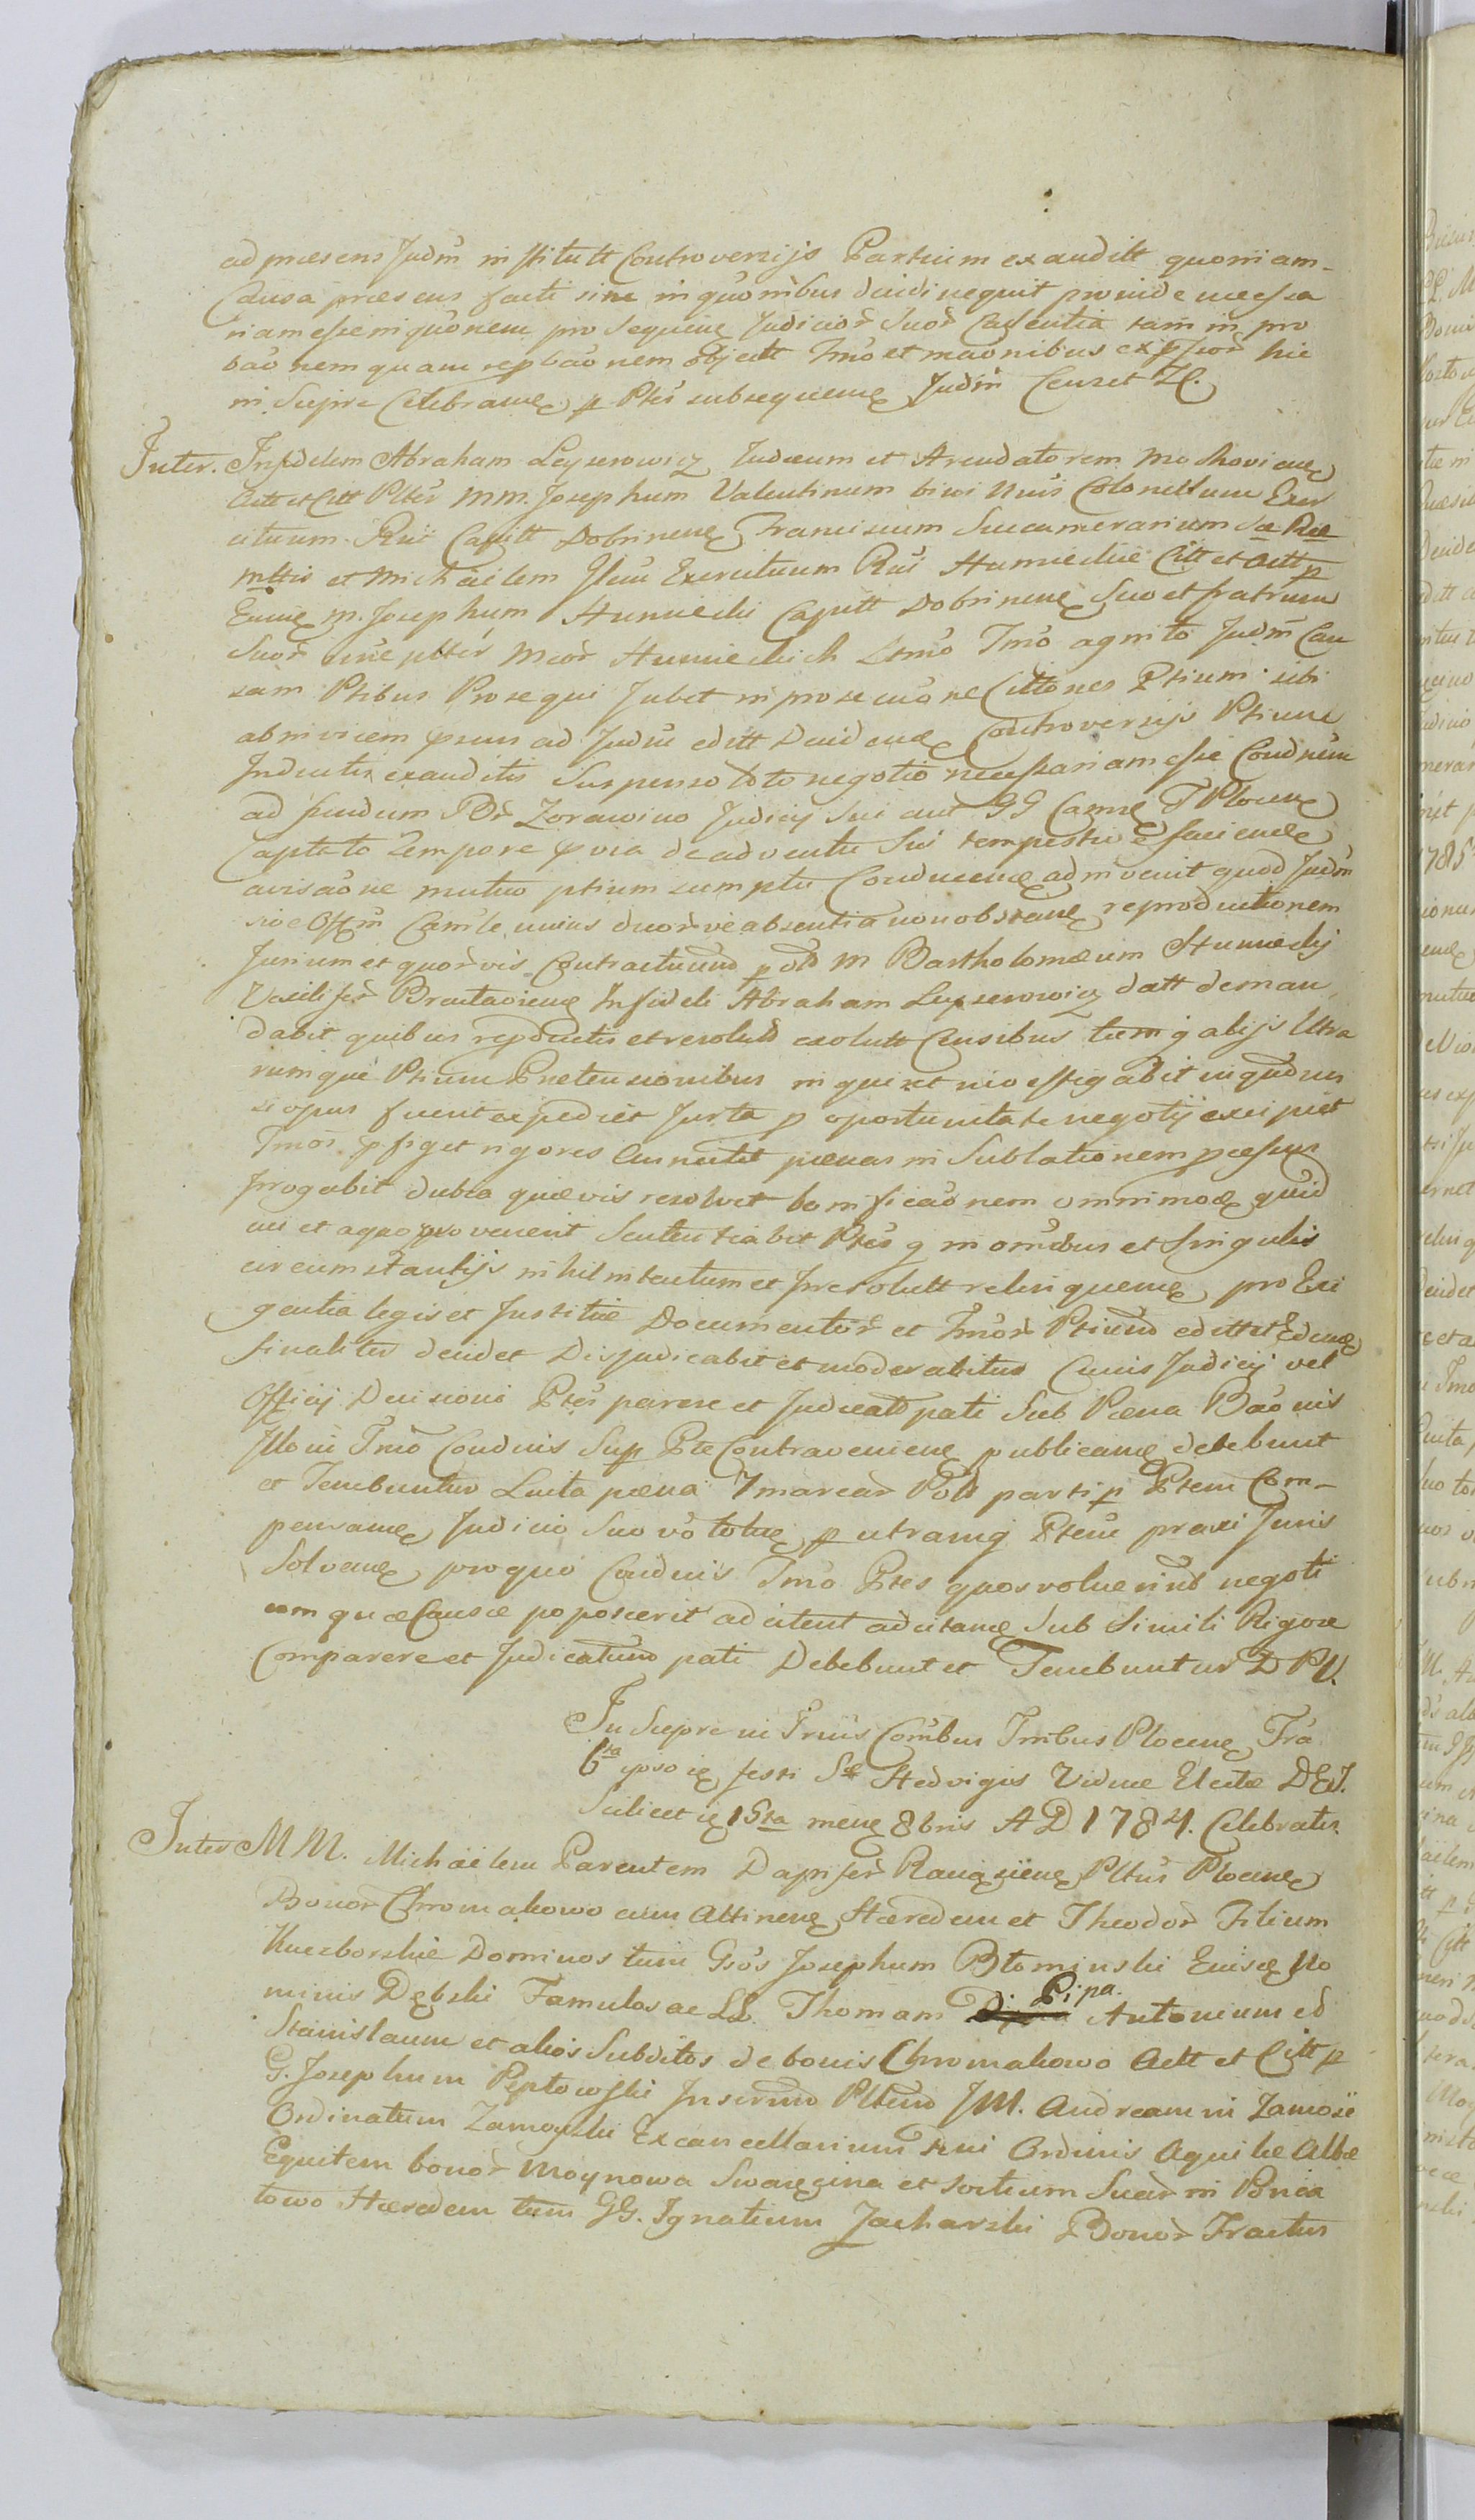 ad præsens Judm institutt Controversijs Partium exauditt quoniam
Causa præsens facti sine inqu͠onibus decidi nequit proinde necessa
riam esse inqu͠onem pro sequen Judicior Suor Cadentia tam in pro
ba͠onem quam repba͠onem objectt Tm͠o et ma͠onibus expssor hic
in Sierpc Celebran p Ptes subsequen Judm Censet
Inter. Infidelem Abraham Leyserowicz Judæum et Arendatorem Mochovien
Actt et Citt Pltes MM. Josephum Valentinum Colonellum Exer
cituum Rni Capitt Dobrinen Franciscum Succamerarium Sæ Ræ
Mttis et Michaelem Exercituum Rni Humieckie Citt et Actt p
Eum M. Josephum Humiecki Capitt Dobrinen Suo et fratrum
Suor Mcor Humieckich Tm͠o agnito Judm Cau
sam Ptibus Prosequi Jubet in prosecu͠one Citt͠ones Ptium sibi
abinvicem ad Judm editt Deciden Controversijs Ptium
Inductis exauditis Suspenso toto negotio necessariam esse Condn͠em
ad fundum Zorawino Judicij Sui aut GG Cam T Plocen
Captato Tempore de adventu Sui tempestive facien
avisa͠one mutuo ptium sumptu Conducen adinvenit quod Judm
sive Offm Camle unius duorve absentia non obstan reproductionem
Jurium et quorvis Contractuum p M Bartholomæum Humiecky
Vexillifer Braclavien Infideli Abraham Leyserowicz datt deman
dabit quibus repductis et resolutt exolutt Censibus tum alijs Utra
rumque Ptium Prætensionibus inquiret
si opus fuerit expediet Jurta p oportunitate negotij excipiet
pfiget rigores Curnectet pænas in Sublationem pcessus
Jrrogabit dubia quævis resolvet bonifica͠onem omnimod quid
cui et a quo provenerit Sententiabit Ptes in omibus et Singulis
circumstantijs nihil intentum et Jrresolutt relinquen pro Exi
gentia legis et Justitiæ Documentor et Ptium editt et Eden
finaliter decidet Disjudicabit et moderabitur Cuius Judicij vel
Officij Decisioni Ptes parere et Judicatt pati Sub Pæna Ba͠onis
Tm͠o Condnis Sup Pte Contravenien publican debebunt
et Tenebuntur Lucta pæna 7 marcar Pold parti p Ptem Com-
pensan Judicio Suo vo totue p utramq Ptem praxi Juris
Solven pro quo Condnis Tm͠o Ptes quos voluerint negoti
um quæ Causæ poposcerit adcitent adcitan Sub Simili Rigore
Comparere et Judicatum pati Debebunt et Tenebuntur D P V.
In Sierpc in Tr͠nis Com͠bus Tm͠ibus Plocen Fra
6ta ipso festi Sæ Hedvigis Viduæ Electæ
Scilicet 15ta men 8bris A D 1784. Celebratis.
Inter MM. Michaëlem Parentem Dapifer Ranzien Pltus Plocen
Bonor Chromakowo cum Attinen Hæredem et Theodor Filium
Kuczborskie Dominos tum Gsos Josephum Błominski Eiusq No
minis Dębski Famulos ac LL. Thomam Pipa. Antonium et
Stanislaum et alios Subditos de bonis Chromakowo Actt et Citt p
G. Josephum Pęptowski Jnservum Pltum JM. Andream in Zamość
Ordinatum Zamoyski Excancellarium Rni Ordinis Aquilæ Albæ
Equitem bonor Moynowa Swaryzina et sortium Suar in Ponia
towo Hæredem tum GG. Ignatium Zacharski Bonor Fractus